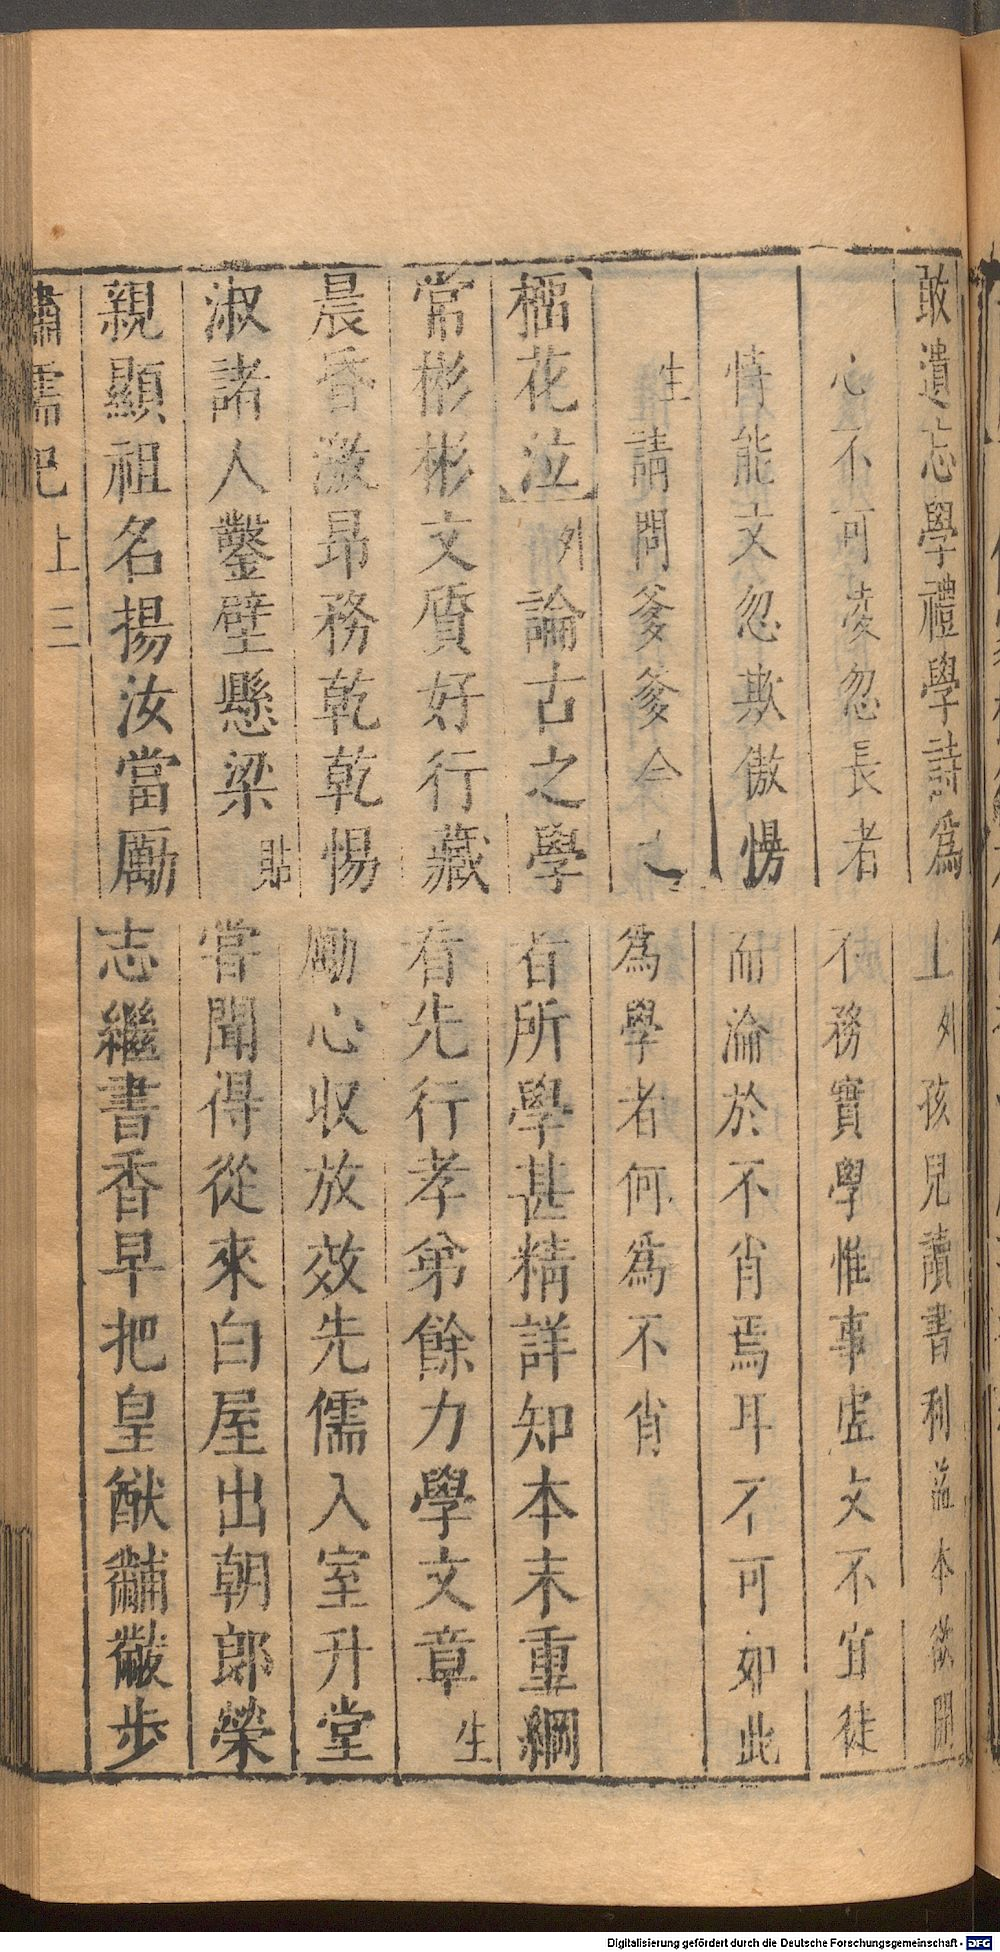 敢遺忘學禮學詩爲上外孩兒讀書利益本欲開
心不可凌忽長者不務實學惟事虛文不宜徒
恃能文忽欺傲愕而淪於不肖焉耳不可如此
生請問爹爹今之爲學者何爲不肖
榴花泣外論古之學有所學甚精詳知本末重綱
常彬彬文質好行藏看先行孝弟餘力學文章生
晨昏激昂務乾乾惕勵心收放效先儒入室升堂
淑諸人鑿壁懸梁貼嘗聞得從來白屋出朝郎榮
親顯祖名揚汝當勵志繼書香早把皇猷黼黻步
繡襦記上三
Digitalisierung gefördert durch die Deutsche Forschungsgemeinschaft - DFG